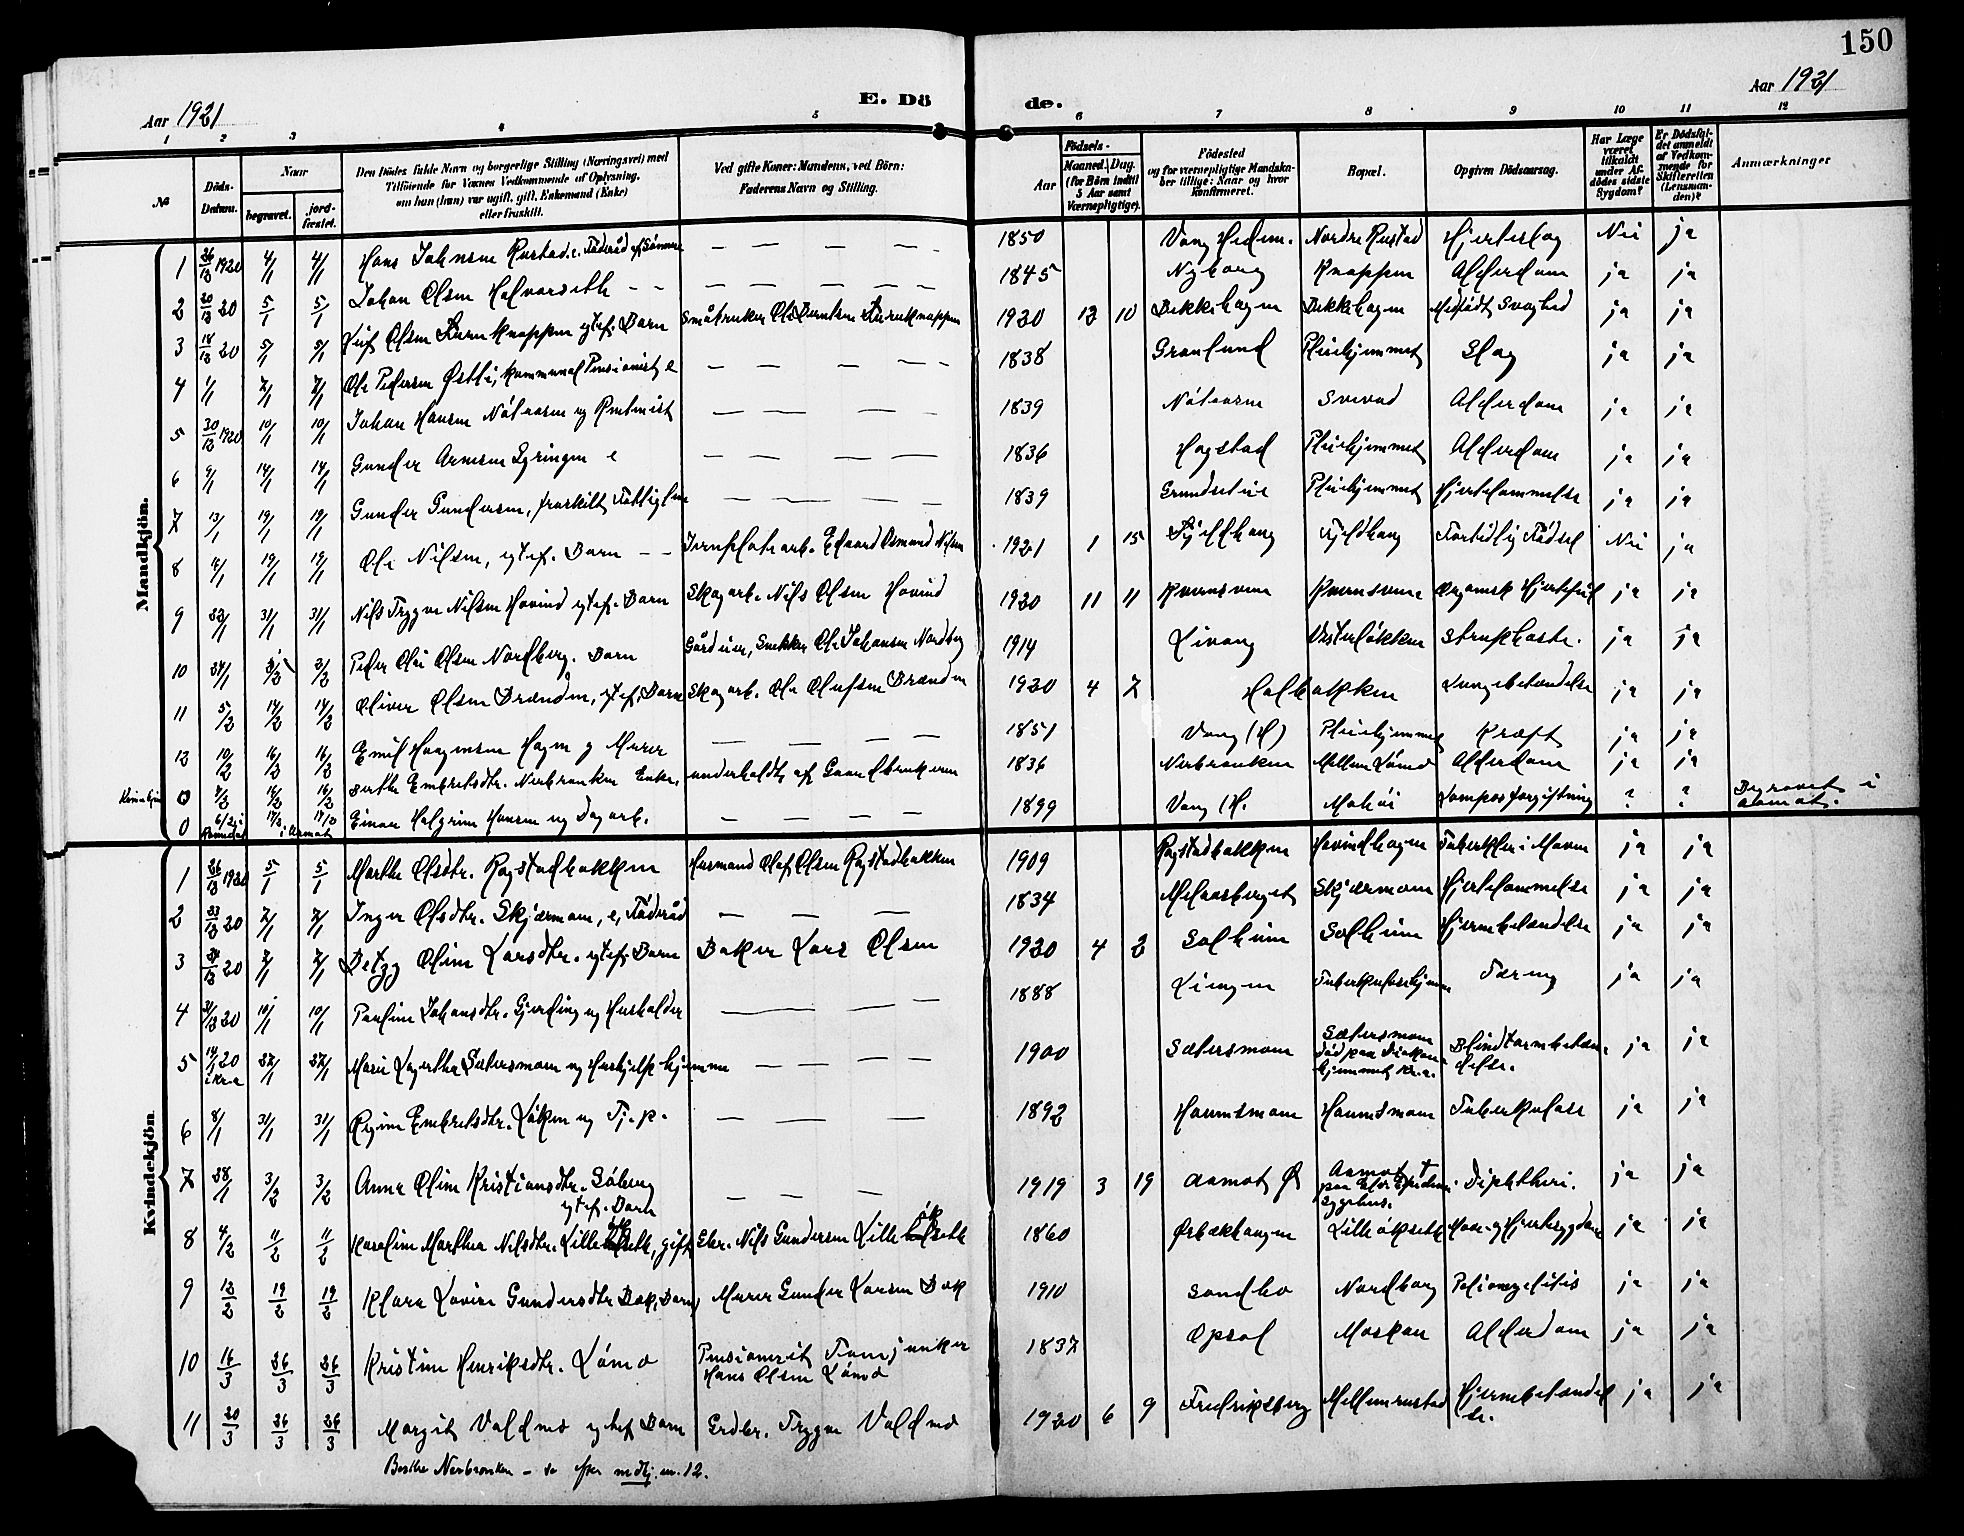 150
Aar 1921
E. Dö
de.
Aar 1921
1 2 3 4 5 6 7 8 9 10 11 12
No
Döds-Datum.
Naar
begravet.
jord-fæstet.
Den Dödes fulde Navn og borgerlige Stilling (Næringsvei) med
Tilföiende for Voxnes Vedkommende af Oplysning,
om han (hun) var ugift, gift, Enkemand (Enke)
eller fraskilt.
Ved gifte Koner: Mandens, ved Börn:
Faderens Navn og Stilling.
Födsels-
Aar
Maaned. Dag.
(for Börn indtil 5 Aar samt Værnepligtige).
Födested
og for værnepligtige Mandska-
ber tillige: Naar og hvor
konfirmeret.
Bopæl.
Opgiven Dödsaarsag.
Har Læge været tilkaldt under Afdödes sidste Sygdom?
Er Dödsfaldet anmeldt af Vedkommende for Skifteretten (Lensmanden)?
Anmærkninger
Mandkjön.
1 26/12 1920 4/1 4/1 Hans Johnsen Rustad e. Föderåd af Sönnen — — — — 1850 Vang Hedm. Nordre Rustad Hjerteslag Nei ja
2 20/12 20 5/1 5/1 Johan Olsen Halvorseth - - — — — — 1845 Nyborg Knappen Alderdom ja ja
3 18/12 20 5/1 5/1 Leif Olsen Furuknappen egtef. Barn Småbruker Ole Berntsen Furuknappen 1920 12 10 Bekkehagen Bekkehagen Medfödt Svaghed ja ja
4 1/1 7/1 7/1 Ole Pedersen Østli, kommunal Pensionist e — — — — 1838 Grønlund Pleiehjemmet Slag ja ja
5 30/12 1920 10/1 10/1 Johan Hansen Nötaasen ug Rentenist — — — — 1839 Nötaasen Svevad Alderdom ja ja
6 9/1 14/1 14/1 Gunder Arnesen Syringen e — — — — 1836 Hagstad Pleiehjemmet Alderdom ja ja
7 13/1 19/1 19/1 Gunder Gundersen, fraskilt Fattiglem — — — — 1839 Grundsetvei Pleiehjemmet Hjertelammelse ja ja
8 19/1 19/1 Ole Nilsen, egtef. Barn - - Jernplatearb. Edvard Osmund Nilsen 1921 1 15 Fjeldhaug Fjeldhaug Fortidlig Födsel Nei ja
9 31/1 31/1 Nils Trygve Nilsen Hovind egtef. Barn Skogarb. Nils Olsen Hovind 1920 11 11 Kvernsveen Kvernsveen Organisk Hjertefeil ja ja
10 3/2 Peder Olai Olsen Nordberg. Barn Gårdeier, Snekker Ole Johansen Nordberg 1914 Livang Vesterløkken Strupehoste. ja ja
11 5/2 14/2 14/2 Oliver Olsen Brænden, egtef. Barn Skogarb. Ole Olufsen Brænden 1920 4 7 Holbakken Lungebetændelse ja ja
12 10/2 16/2 16/2 Emil Haagensen Hagen g Murer — — — — 1851 Vang (H) Pleiehjemmet Kræft ja ja
Kvindekjøn 0 16/2 16/2 Berthe Embretsdtr. Nerbraaten Enke, underholdt af Gaardbrukeren 1836 Nerbraaten Mellem Lömo Alderdom ja ja
0 i Aamot Einar Halgrim Hansen ug Dagarb. — — — — 1899 Vang (H. Mohöi ? ? Begravet i Aamot.
Kvindekjön.
1 26/12 1920 5/1 5/1 Marthe Olsdtr. Rogstadbakken Husmand Olaf Olsen Rogstadbakken 1909 Rogstadbakken Hovindhagen Tuberkler i Maven ja ja
2 23/12 20 7/1 7/1 Inger Olsdtr. Skjærmoen, e, Föderåd — — — 1834 Melaasberget Skjærmoen Hjertelammelse ja ja
3 7/1 7/1 Betzy Oline Larsdtr. egtef. Barn Baker Lars Olsen 1920 4 2 Solheim Solheim Hjernebetændelse ja ja
4 31/12 20 10/1 10/1 Pauline Johansdtr. Gjerding ug Husholder — — — — 1888 Liengen Tuberkulosehjem Tæring ja ja
5 20 i Kr.a 27/1 27/1 Marie Lagertha Sætersmoen ug Hushjelp hjemme — — — — 1900 Sætersmoen Sætersmoen död paa Diakonhjemmet Kr.a. Blindtarmbetændelse. ja ja
6 8/1 31/1 31/1 Regine Embretsdtr. Løken ug Tj.p. — — — — 1892 Haumsmoen Haumsmoen Tuberkulose ja ja
7 28/1 3/2 3/2 Anna Oline Kristiansdtr. Söberg egtef. Barn — — — 1919 3 19 Aamot Ø Aamot † paa Elv. Epidemi Sygehus. Diphtheri. ja ja
8 4/2 11/2 11/2 Karoline Marthea Nilsdtr. Lilleökseth, gift Eier. Nils Gundersen Lilleökseth 1860 Ørbækhaugen Lilleökseth Mave- og Hjertesygdom ja ja
9 12/2 19/2 19/2 Klara Lovise Gundersdtr Bak, Barn, Murer Gunder Larsen Bak 1910 Sandbo Nordborg Poliomyelitis ja ja
10 16/3 26/3 26/3 Kristine Henriksdtr. Lömo Pensionert Fanejunker Hans Olsen Lömo 1837 Opsal Moskau Alderdom ja ja
11 20/3 26/3 26/3 Margit Voldmo egtef Barn Grdbr. Trygve Voldmo 1920 6 9 Fredriksberg Mellemrustad Hjernebetændelse. ja ja
Berthe Nerbraaten - se efter mdkj. nr. 12.